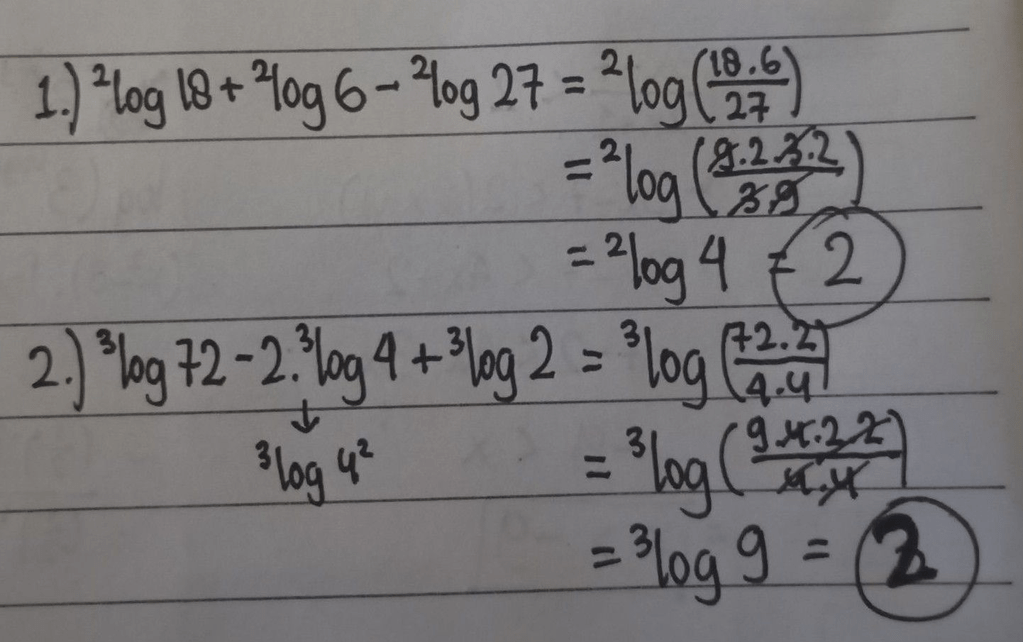 1.) ²log 18 + ²log 6 - ²log 27 = ²log(18.6/27)
= ²log(9.2.3.2/3.9)
= ²log 4 = 2
2.) ³log 72 - 2.³log 4 + ³log 2 = ³log(72.2/4.4)
↓
³log 4² = ³log(9.4.2.2/4.4)
= ³log 9 = 2